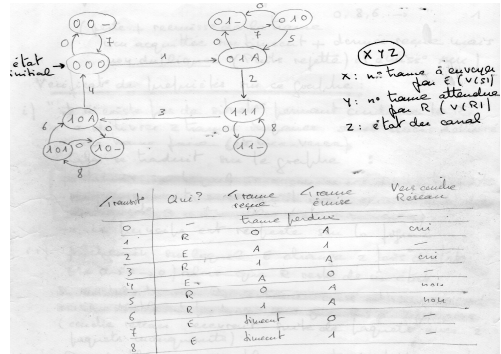 00-
0
7
état
initial
000
1
0
01-
0
7
010
5
01A
2
X Y Z
X: n° trame à envoyer
par E (V(S))
Y: n° trame attendue
par R (V(R))
Z: état du canal
4
10A
3
111
6
0
0
8
101
0
10-
8
11-
Transit° Qui? Trame reçue Trame émise Vers couche Réseau
0 — trame perdue —
1 R 0 A oui
2 E A 1 —
3 R 1 A oui
4 E A 0 —
5 R 0 A non
6 R 1 A non
7 E timeout 0 —
8 E timeout 1 —